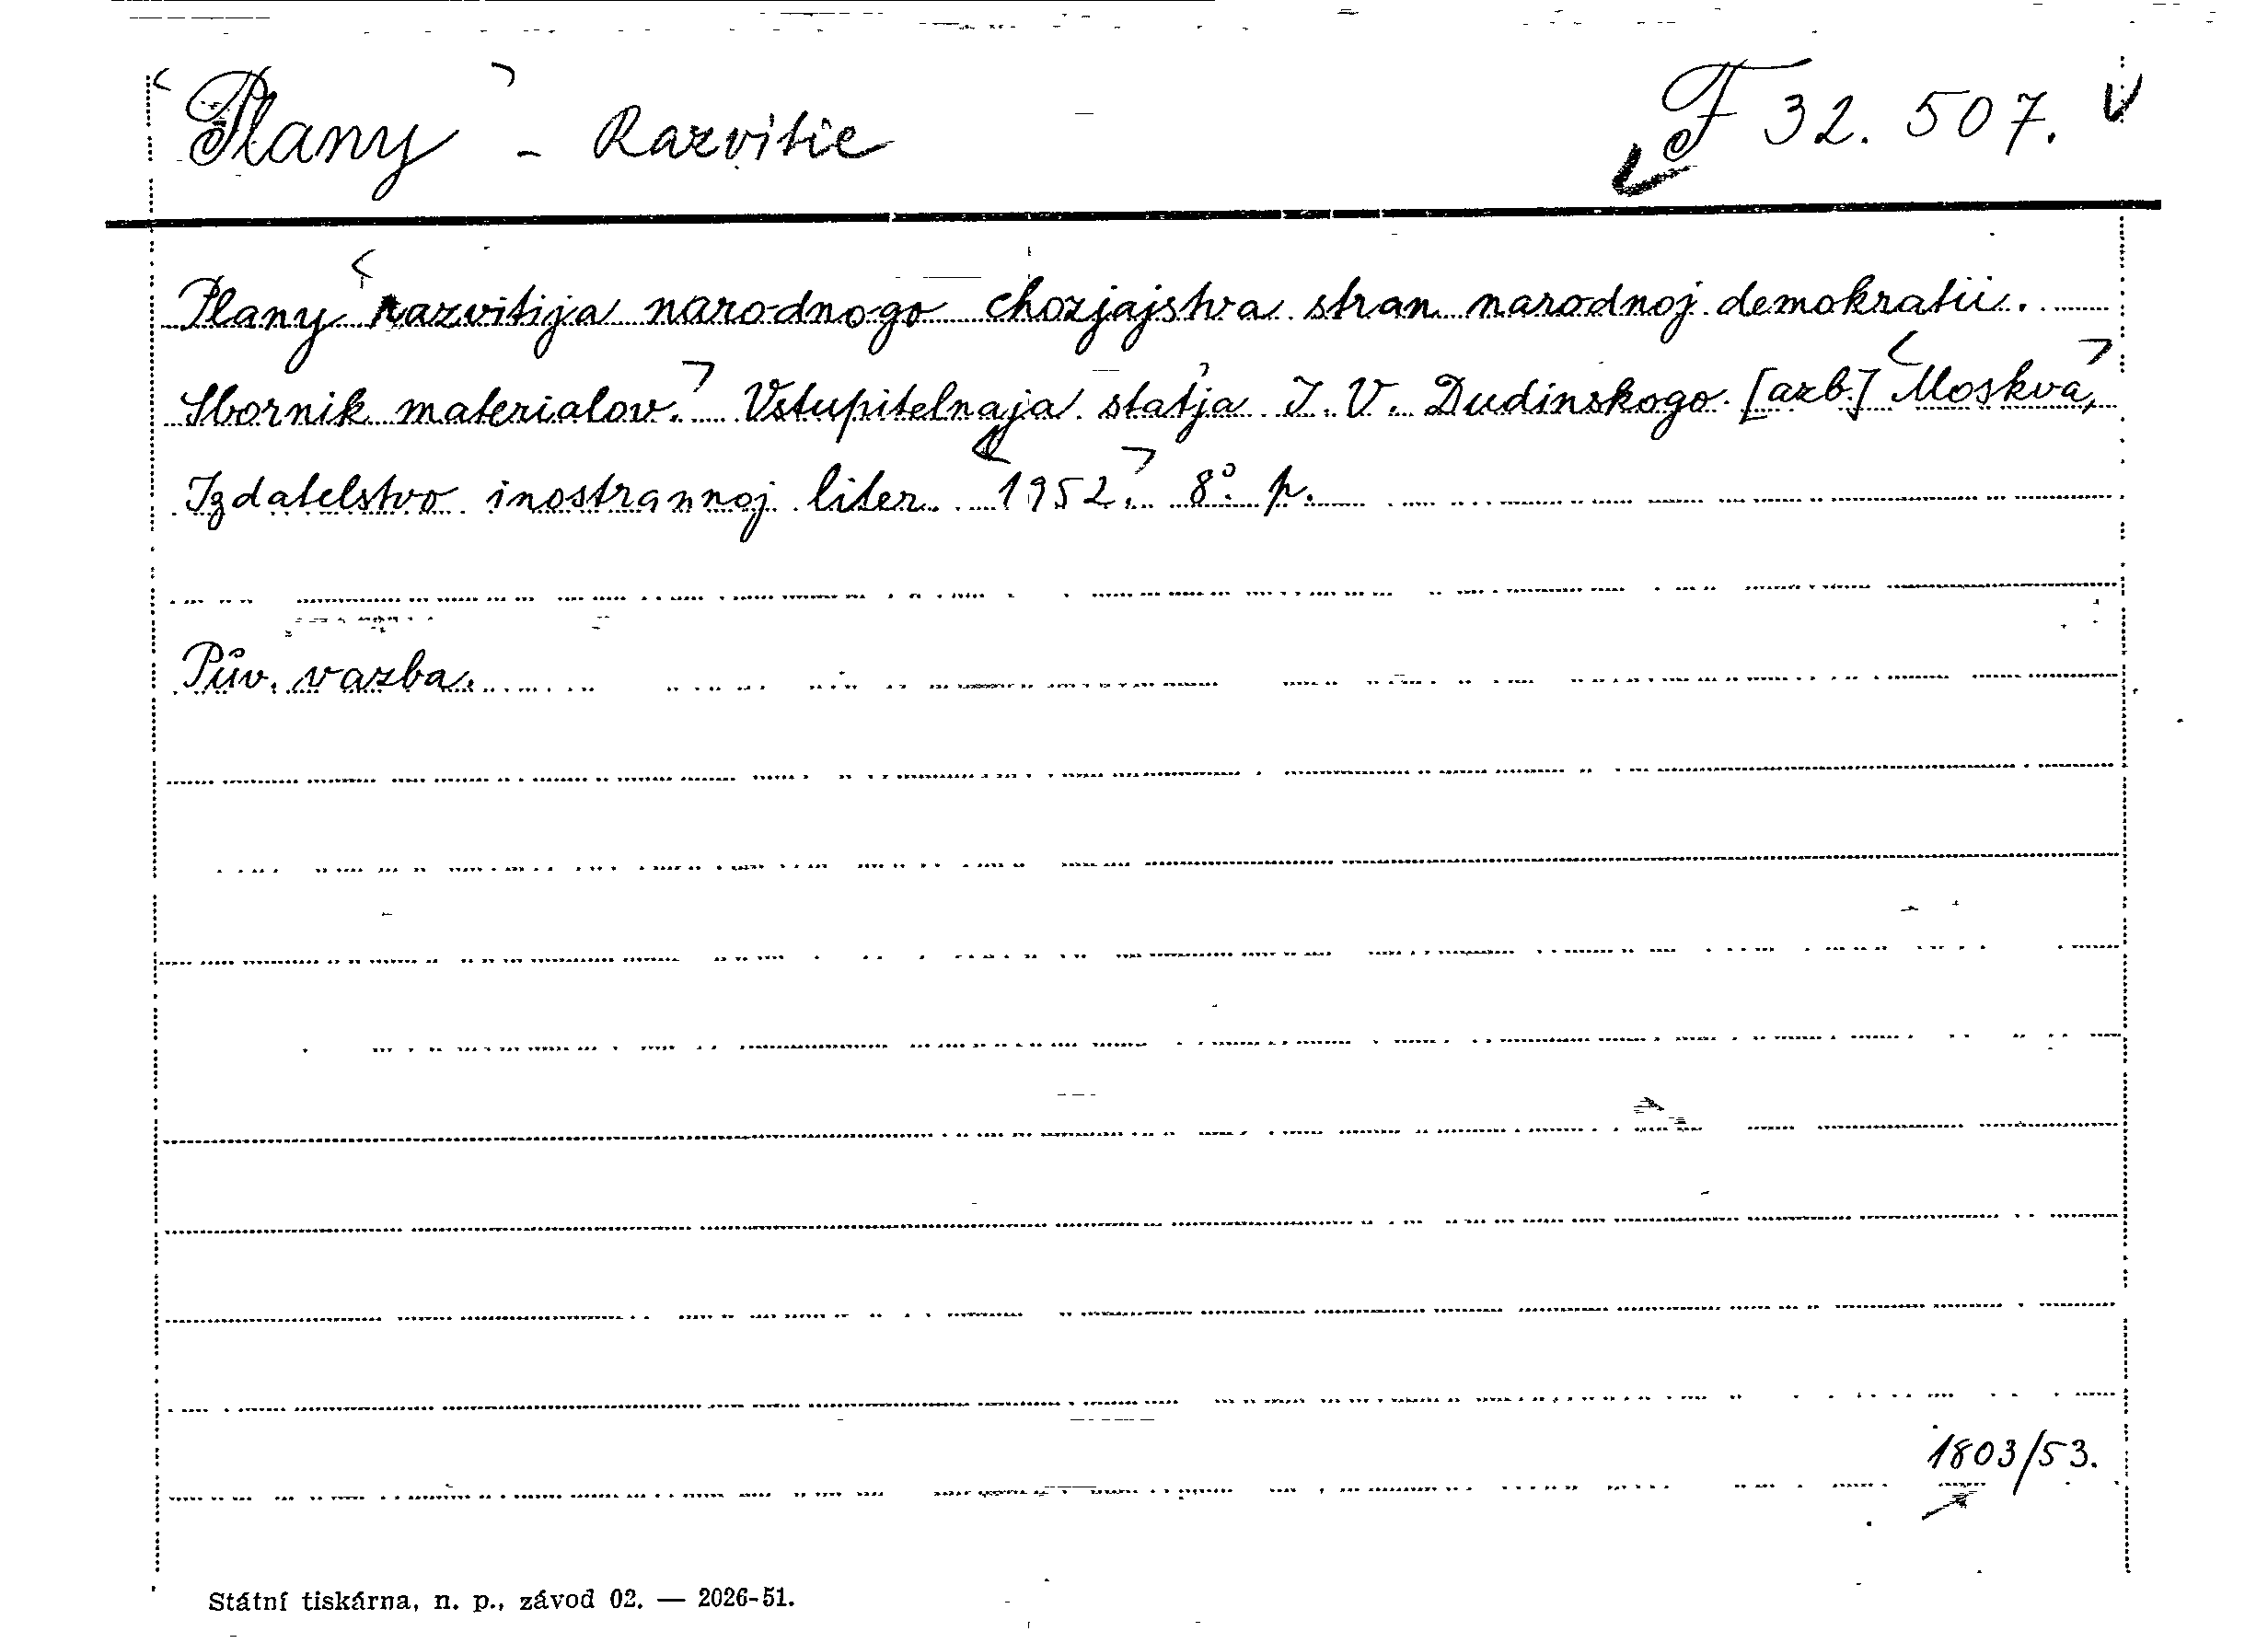 Plany - Razvitie F 32.507.
Plany razvitija narodnogo chozjajstva stran narodnoj demokratii.
Sbornik materialov. Vstupitelnaja statja I. V. Dudinskogo. [azb.] Moskva,
Izdatelstvo inostrannoj liter. 1952. 8°. p.
Pův. vazba.
1803/53.
Státní tiskárna, n. p., závod 02. — 2026-51.